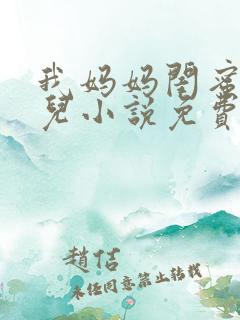 我妈妈閏蜜
兒小说免費
趙佶
未经同意禁止转载